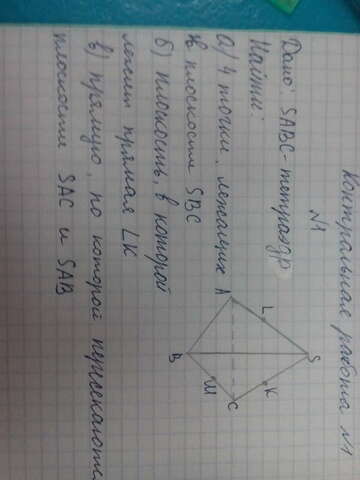 Контрольная работа №1
№1
Дано: SABC-тетраэдр
Найти:
а) 4 точки, лежащих
в плоскости SBC
б) плоскость, в которой
лежит прямая LK
в) прямую, по которой пересекаются
плоскости SAC и SAB
S
L
K
A
C
M
B